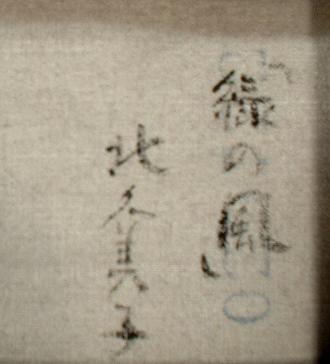 「緑の風」
北久美子